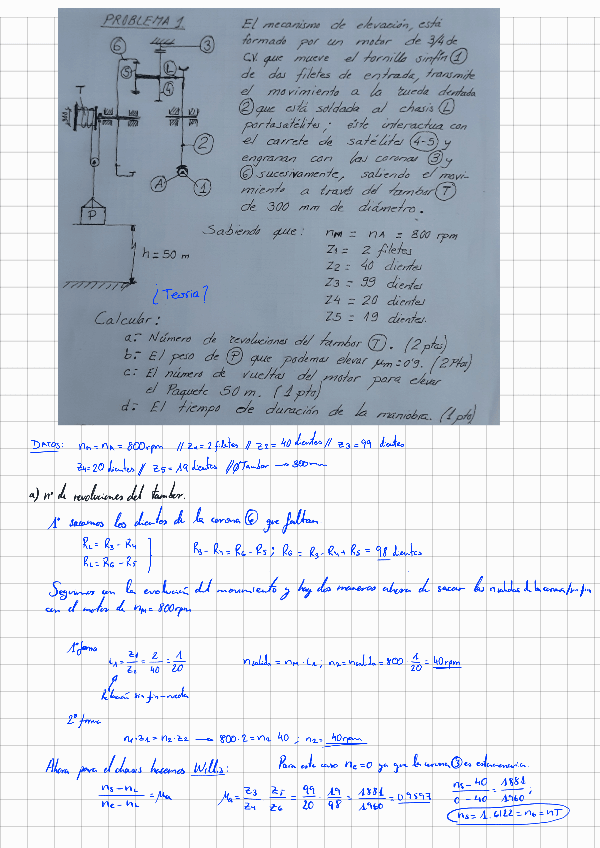 PROBLEMA 1.
El mecanismo de elevación, está
formado por un motor de 3/4 de
C.V. que mueve el tornillo sinfín 1
de dos filetes de entrada, transmite
el movimiento a la rueda dentada
2 que está soldada al chasis L
portasatélites; éste interactua con
el carrete de satélites 4-5 y
engranan con las coronas 3 y
6 sucesivamente, saliendo el movi-
miento a través del tambor T
de 300 mm de diámetro.
6
3
5
L
4
T
2
A
1
P
h = 50 m
Sabiendo que: nM = nA = 800 rpm
Z1 = 2 filetes
Z2 = 40 dientes
Z3 = 99 dientes
Z4 = 20 dientes
Z5 = 19 dientes.
¿Teoría?
Calcular:
a.- Número de revoluciones del tambor T. (2 ptos)
b.- El peso de P que podemos elevar μm = 0'9. (2 Ptos)
c.- El número de vueltas del motor para elevar
el Paquete 50 m. (1 pto)
d.- El tiempo de duración de la maniobra. (1 pto)
DATOS: nM = nA = 800 rpm // Z1 = 2 filetes // Z2 = 40 dientes // Z3 = 99 dientes
Z4 = 20 dientes // Z5 = 19 dientes // Ø Tambor → 300 mm
a) nº de revoluciones del tambor.
1º sacamos los dientes de la corona 6 que faltan
RL = R3 - R4
RL = R6 - R5
R3 - R4 = R6 - R5 ; R6 = R3 - R4 + R5 = 98 dientes
Seguimos con la evolución del movimiento y hay dos maneras ahora de sacar las n salidas de la corona/sin fin
con el motor de nM = 800 rpm
1ª forma
i1 = Z1/Z2 = 2/40 = 1/20
n salida = nM · i1 ; n2 = n salida = 800 · 1/20 = 40 rpm
Relación sin fin-rueda
2ª forma
n1 · Z1 = n2 · Z2 → 800 · 2 = n2 · 40 ; n2 = 40 rpm
Ahora para el chasis hacemos Willis:
Para este caso nc = 0 ya que la corona 3 es estacionaria.
ns - nL / nc - nL = μa
μa = Z3/Z4 · Z5/Z6 = 99/20 · 19/98 = 1881/1960 = 0.9597
ns - 40 / 0 - 40 = 1881/1960 ;
ns = 1.6122 = n6 = nT